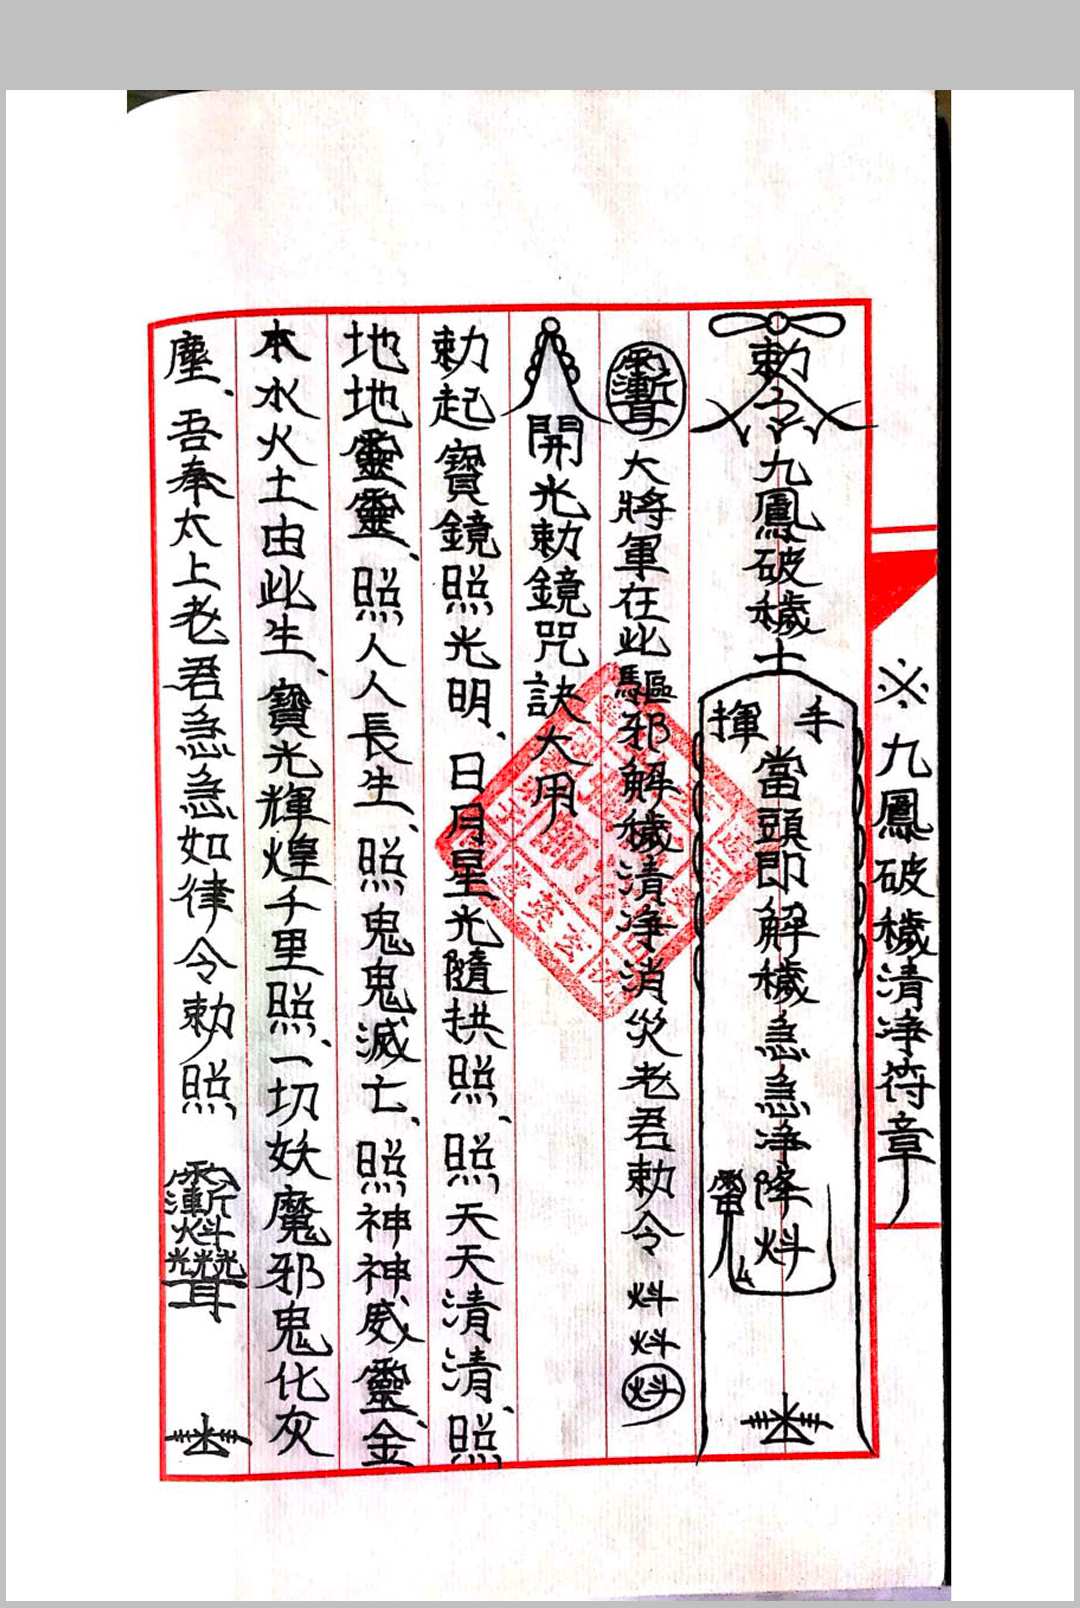 ※九鳳破穢清净符章
勅令九鳳破穢士
手揮
當頭即解穢急急净降炓
大將軍在此驅邪解穢清净消災老君勅令炓炓炓
開光勅鏡咒訣大用
勅起寶鏡照光明、日月星光隨拱照、照天天清清、照
地地靈靈、照人人長生、照鬼鬼滅亡、照神神威靈、金
木水火土由此生、寶光輝煌千里照、一切妖魔邪鬼化灰
塵、吾奉太上老君急急如律令勅照、